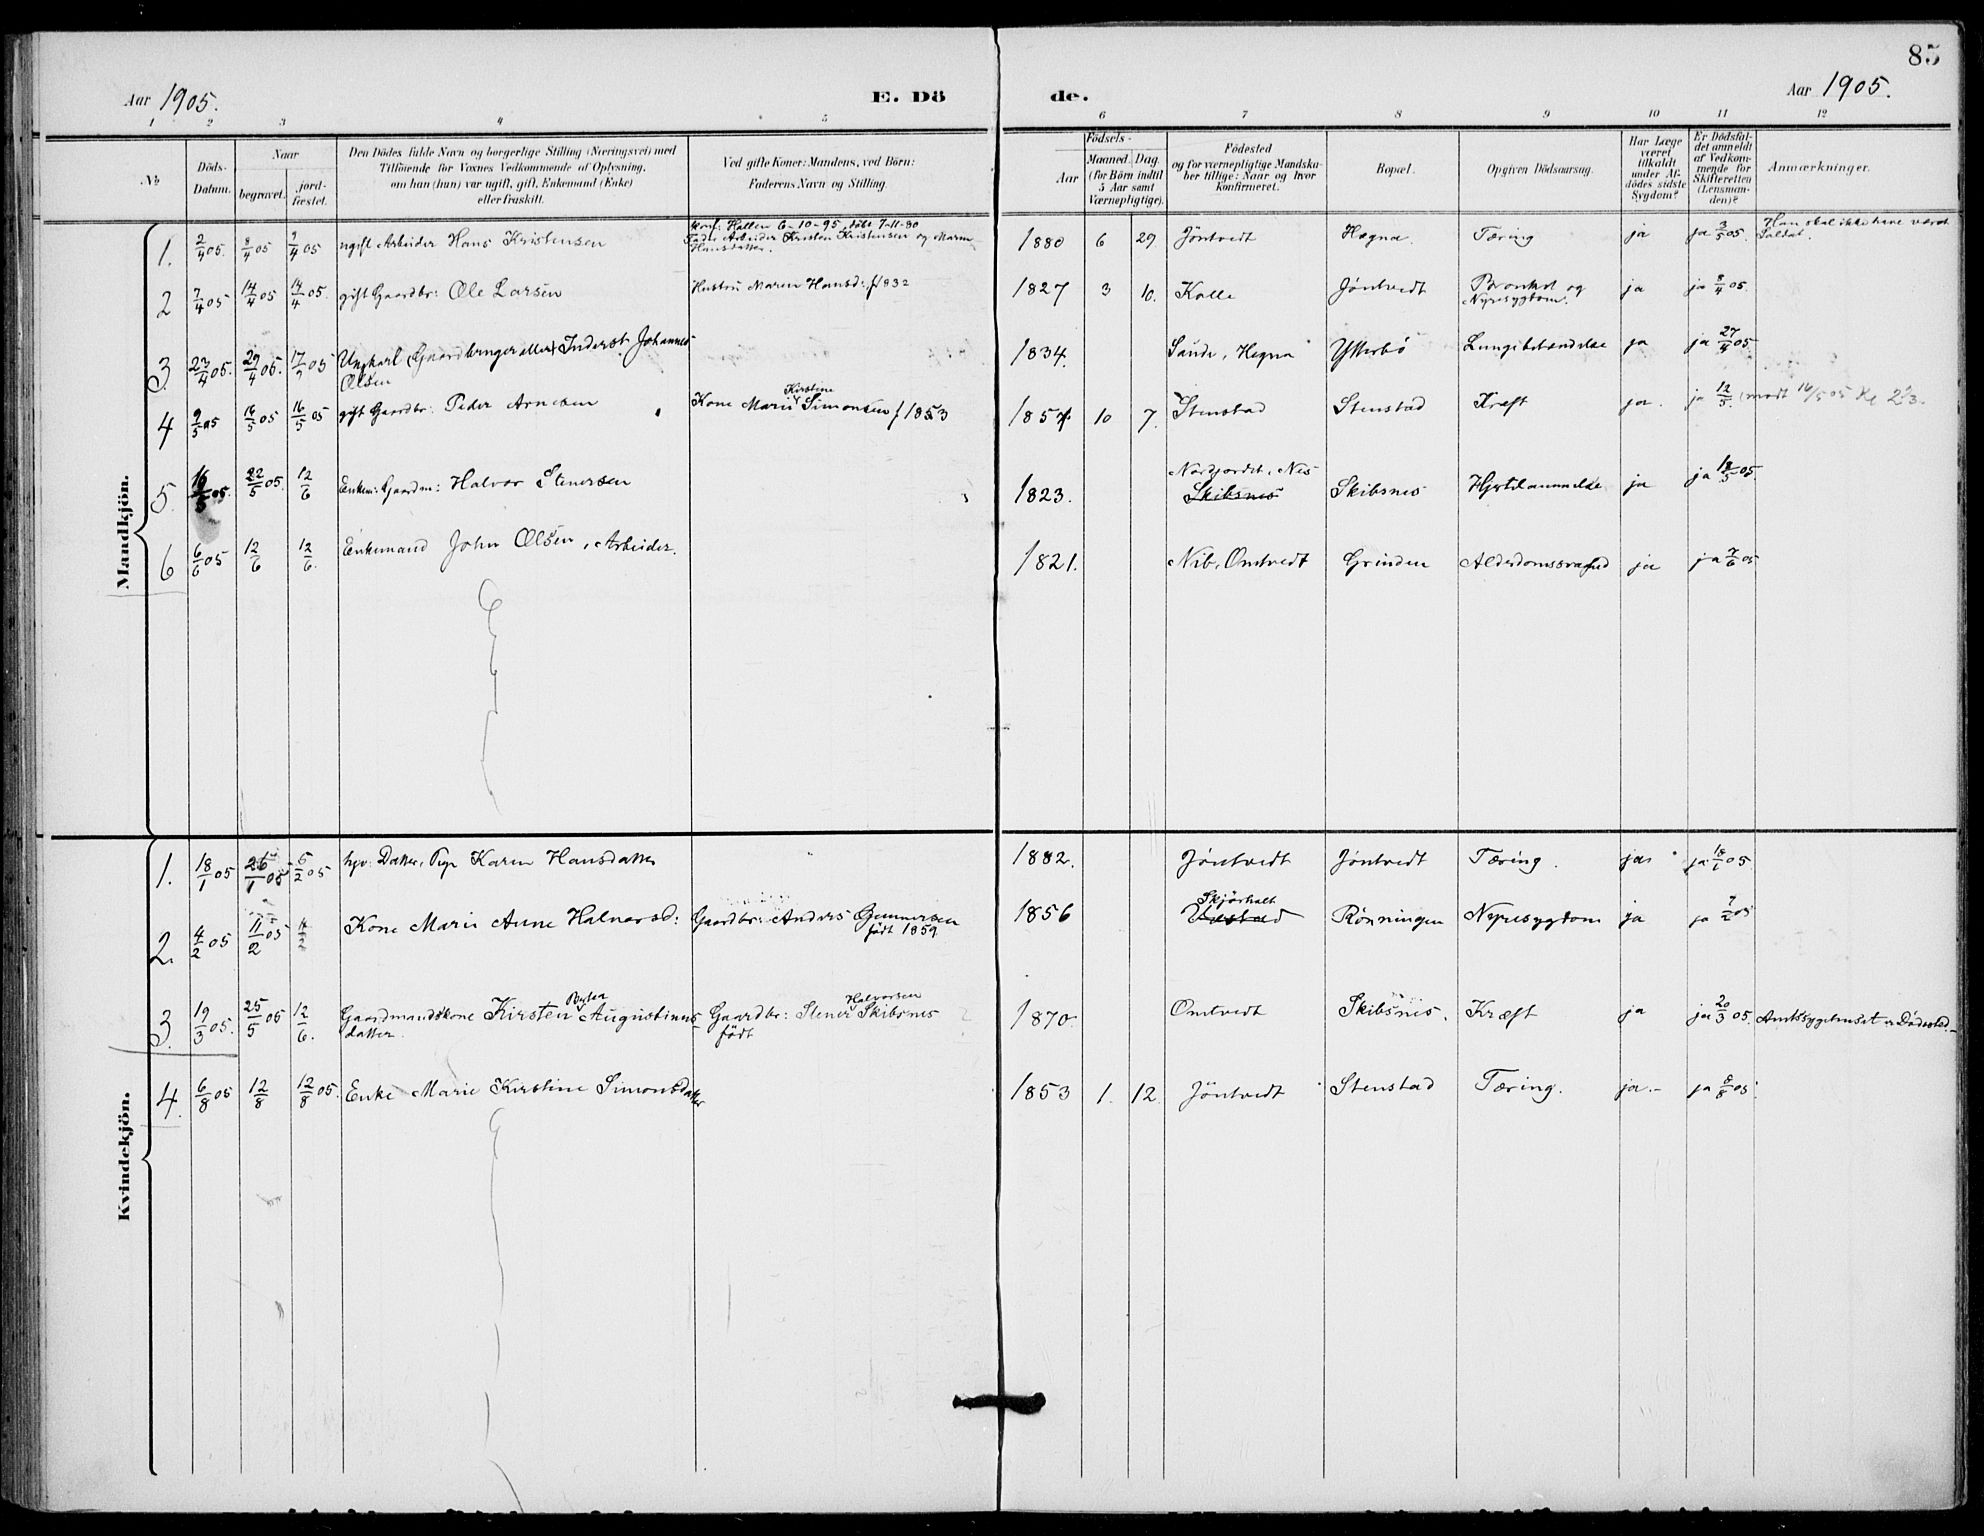 85
Aar 1905.
E. Dö
de.
Aar 1905.
1 2 3 4 5 6 7 8 9 10 11 12
No.
Döds-
Datum.
Naar
begravet.
jord-
fæstet.
Den Dödes fulde Navn og borgerlige Stilling (Næringsvei) med
Tilföiende for Voxnes Vedkommende af Oplysning,
om han (hun) var ugift, gift, Enkemand (Enke)
eller fraskilt.
Ved gifte Koner: Mandens, ved Börn:
Faderens Navn og Stilling.
Födsels-
Aar
Maaned. Dag.
(for Börn indtil
5 Aar samt
Værnepligtige).
Födested
og for værnepligtige Mandska-
ber tillige: Naar og hvor
konfirmeret.
Bopæl.
Opgiven Dödsaarsag.
Har Læge
været
tilkaldt
under Af-
dödes sidste
Sygdom?
Er Dödsfal-
det anmeldt
af Vedkom-
mende for
Skifteretten
(Lensman-
den)?
Anmærkninger.
Mandkjön.
1. 2/4 05. 8/4 05 9/4 05 ugift Arbeider Hans Kristensen
Konf: Hallen 6-10-95, døbt 7-11-80
Fader Arbeider Kristen Kristensen og Maren
Hansdatter.
1880 6 29 Jöntvedt Hægna. Tæring ja ja 3/5 05. Han skal ikke have været
Soldat.
2 7/4 05 14/4 05 14/4 05. gift Gaardbr: Ole Larsen Hustru Maren Hansd: f 1832 1827 3 10. Kolle Jöntvedt Bronkit og
Nyresygdom. ja ja 8/4 05.
3. 23/4 05. 29/4 05. 17/ 05 Ungkarl (Gaardbruger eller) Inderst Johannes
Olsen
1834. Saude, Hegna Ytterbö Lungebetændelse ja ja 27/4 05
4 9/5 05 16/5 05 16/5 05 gift Gaardbr: Peder Arnesen Kone Marie Kirstine Simonsen f 1853 1857 10 7. Stenstad Stenstad Kræft ja. ja 12/5. mødt 16/5 05 Kl
5. 16/5 05. 22/5 05. 12/6 Enkem: Gaardm: Halvor Stenersen 1823. Nordjordet, Nes
Skibsnes Skibsnes Hjertelammelse ja ja 18/5 05.
6 6/6 05 12/6 12/6. Enkemand John Olsen, Arbeider. 1821. Nib, Omtvedt Grinden Alderdomssvaghed ja ja 7/6 05
Kvindekjön.
1. 18/1 05 26/1 05 5/2 05 hjv: Datter, Pige Karen Hansdatter 1882. Jöntvedt Jöntvedt Tæring. ja. ja 18/1 05.
2. 4/2 05 11/2 05 11/2 Kone Marie Anne Halvorsd: Gaardbr: Anders Gunnersen
födt 1859
1856 Skjörholt
Rönningen Nyresygdom ja ja 7/2 05
3. 19/3 05. 25/5 05 12/6. Gaardmandskone Kirsten Berta Augustinus-
datter.
Gaardbr: Stener Halvorsen Skibsnes
födt
1870. Omtvedt Skibsnes. Kræft ja ja 20/3 05. Amtssygehuset er Dödssted.
4. 6/8 05 12/8 12/8 05. Enke Marie Kirstine Simonsdatter 1853 1. 12. Jöntvedt Stenstad Tæring. ja.- ja 8/8 05.